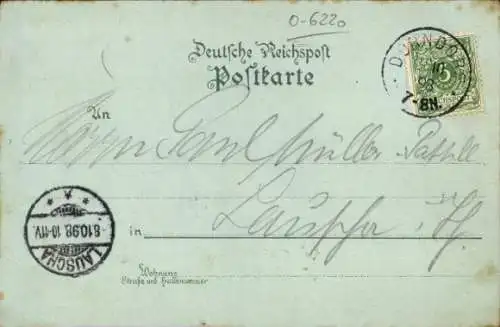 0-6220
Deutsche Reichspost
Postkarte
DÖRNDO
10
98
7-8N.
5
An
Herrn Paul Müller
in Lauscha
8.10.98.10-11V.
LAUSCHA
Wohnung
Straße und Hausnummer